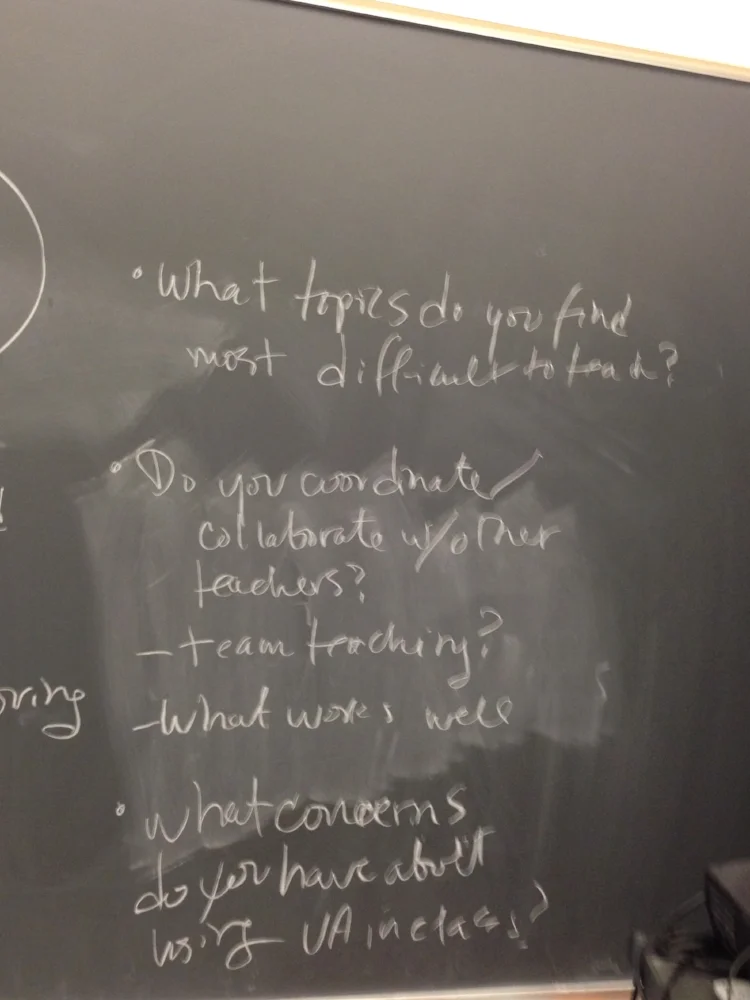 • What topics do you find
most difficult to teach?
• Do you coordinate/
collaborate w/other
teachers?
- team teaching?
oring
- What works well
• What concerns
do you have about
using UA in class?